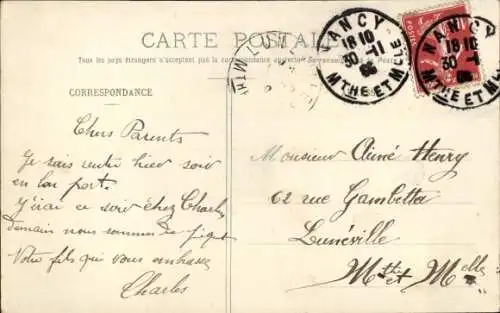 CARTE POSTALE
Tous les pays étrangers n'acceptent pas la correspondance au recto
CORRESPONDANCE
NANCY
18 10
30 -11
MTHE ET MLLE
NANCY
18 10
30 -11
MTHE ET M
Chers Parents
Je suis rentré hier soir
en bon port.
J'irai ce soir chez Charles
demain nous sommes de piquet
Votre fils qui vous embrasse
Charles
Monsieur Aimé Henry
62 rue Gambetta
Lunéville
Mthe et Mlle